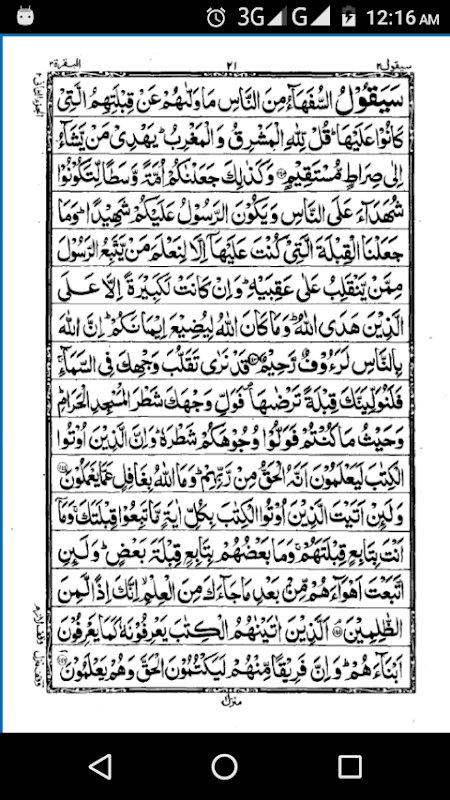 3G G 12:16 AM
سيقول ٢ ٢١ البقرة ٢
سَيَقُوْلُ السُّفَهَآءُ مِنَ النَّاسِ مَا وَلّٰىهُمْ عَنْ قِبْلَتِهِمُ الَّتِيْ
كَانُوْا عَلَيْهَا ؕ قُلْ لِّلّٰهِ الْمَشْرِقُ وَ الْمَغْرِبُ ؕ يَهْدِيْ مَنْ يَّشَآءُ
اِلٰى صِرَاطٍ مُّسْتَقِيْمٍ ۝ وَ كَذٰلِكَ جَعَلْنٰكُمْ اُمَّةً وَّسَطًا لِّتَكُوْنُوْا
شُهَدَآءَ عَلَى النَّاسِ وَ يَكُوْنَ الرَّسُوْلُ عَلَيْكُمْ شَهِيْدًا ؕ وَ مَا
جَعَلْنَا الْقِبْلَةَ الَّتِيْ كُنْتَ عَلَيْهَاۤ اِلَّا لِنَعْلَمَ مَنْ يَّتَّبِعُ الرَّسُوْلَ
مِمَّنْ يَّنْقَلِبُ عَلٰى عَقِبَيْهِ ؕ وَ اِنْ كَانَتْ لَكَبِيْرَةً اِلَّا عَلَى
الَّذِيْنَ هَدَى اللّٰهُ ؕ وَ مَا كَانَ اللّٰهُ لِيُضِيْعَ اِيْمَانَكُمْ ؕ اِنَّ اللّٰهَ
بِالنَّاسِ لَرَءُوْفٌ رَّحِيْمٌ ۝ قَدْ نَرٰى تَقَلُّبَ وَجْهِكَ فِي السَّمَآءِ ۚ
فَلَنُوَلِّيَنَّكَ قِبْلَةً تَرْضٰىهَا ۪ فَوَلِّ وَجْهَكَ شَطْرَ الْمَسْجِدِ الْحَرَامِ ؕ
وَ حَيْثُ مَا كُنْتُمْ فَوَلُّوْا وُجُوْهَكُمْ شَطْرَهٗ ؕ وَ اِنَّ الَّذِيْنَ اُوْتُوا
الْكِتٰبَ لَيَعْلَمُوْنَ اَنَّهُ الْحَقُّ مِنْ رَّبِّهِمْ ؕ وَ مَا اللّٰهُ بِغَافِلٍ عَمَّا يَعْمَلُوْنَ ۝
وَ لَئِنْ اَتَيْتَ الَّذِيْنَ اُوْتُوا الْكِتٰبَ بِكُلِّ اٰيَةٍ مَّا تَبِعُوْا قِبْلَتَكَ ۚ وَ مَاۤ
اَنْتَ بِتَابِعٍ قِبْلَتَهُمْ ۚ وَ مَا بَعْضُهُمْ بِتَابِعٍ قِبْلَةَ بَعْضٍ ؕ وَ لَئِنِ
اتَّبَعْتَ اَهْوَآءَهُمْ مِّنْۢ بَعْدِ مَا جَآءَكَ مِنَ الْعِلْمِ ۙ اِنَّكَ اِذًا لَّمِنَ
الظّٰلِمِيْنَ ۝ اَلَّذِيْنَ اٰتَيْنٰهُمُ الْكِتٰبَ يَعْرِفُوْنَهٗ كَمَا يَعْرِفُوْنَ
اَبْنَآءَهُمْ ؕ وَ اِنَّ فَرِيْقًا مِّنْهُمْ لَيَكْتُمُوْنَ الْحَقَّ وَ هُمْ يَعْلَمُوْنَ ۝
منزل